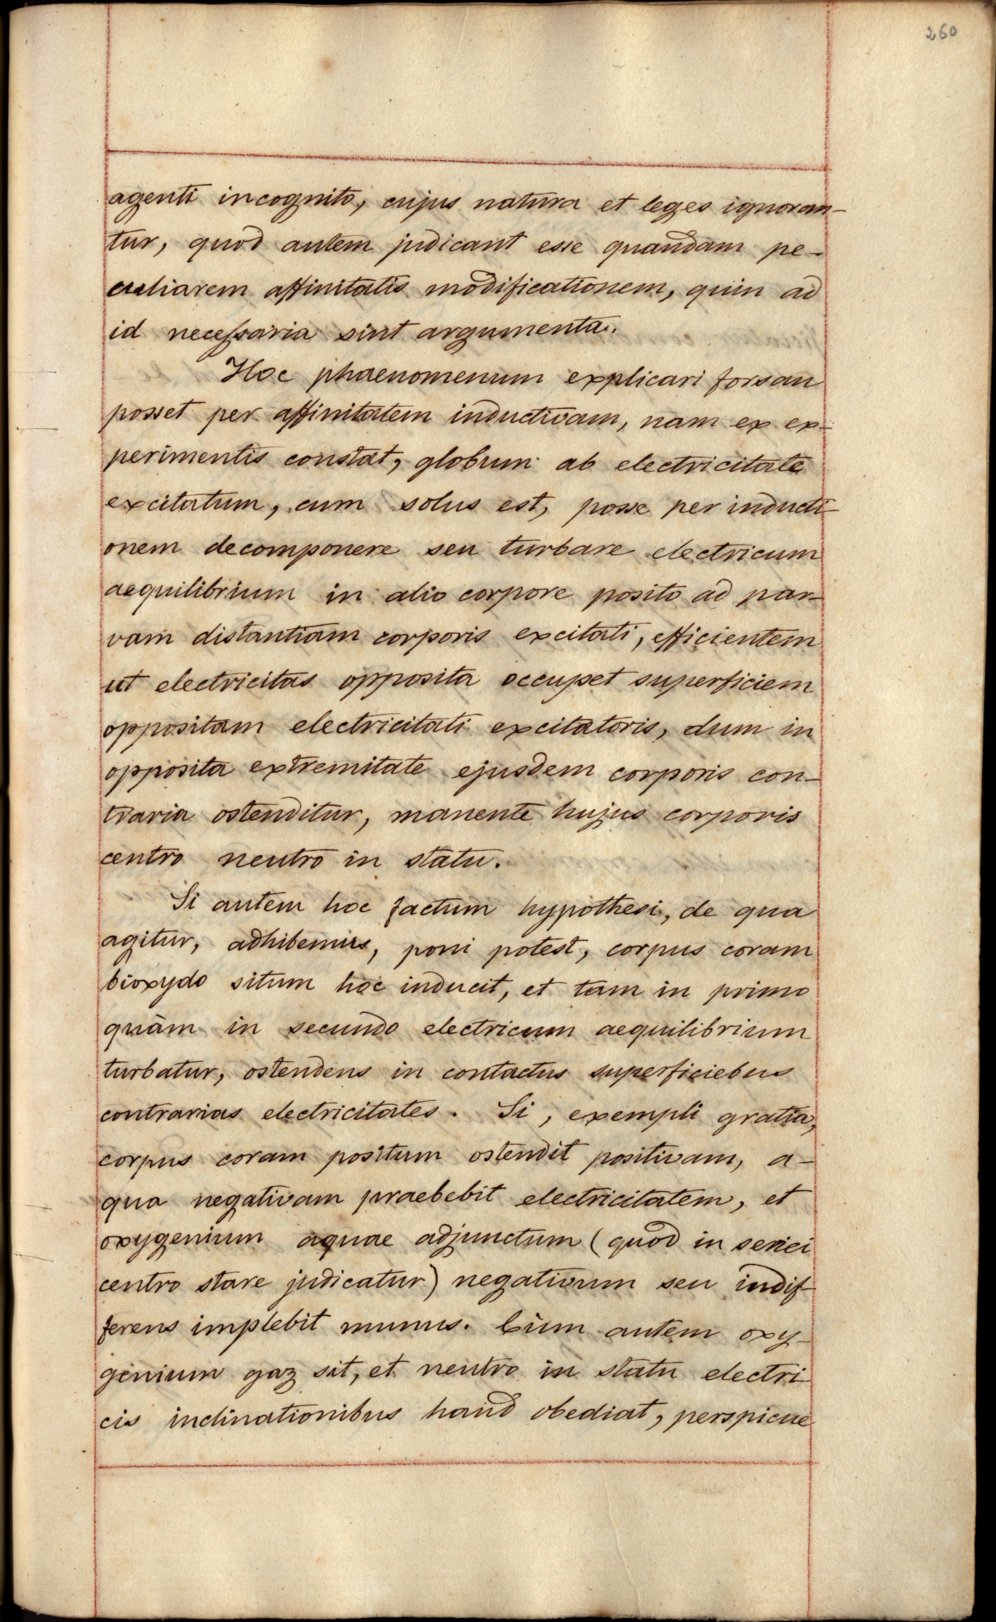 260
agenti incognito, cujus natura et leges ignoran-
tur, quod autem judicant esse quandam pe-
culiarem affinitatis modificationem, quin ad
id necessaria sint argumenta.
Hoc phaenomenum explicari forsan
posset per affinitatem inductivam, nam ex ex-
perimentis constat, globum ab electricitate
excitatum, cum solus est, posse per inducti-
onem decomponere seu turbare electricum
aequilibrium in alio corpore posito ad par-
vam distantiam corporis excitati, efficientem
ut electricitas opposita occupet superficiem
oppositam electricitati excitatoris, dum in
opposita extremitate ejusdem corporis con-
traria ostenditur, manente hujus corporis
centro neutro in statu.
Si autem hoc factum hypothesi, de qua
agitur, adhibemus, poni potest, corpus coram
bioxydo situm hoc inducit, et tam in primo
quàm in secundo electricum aequilibrium
turbatur, ostendens in contactus superficiebus
contrarias electricitates. Si, exempli gratia,
corpus coram positum ostendit positivam, a-
qua negativam praebebit electricitatem, et
oxygenium aquae adjunctum (quod in seriei
centro stare judicatur) negativum seu indif-
ferens implebit munus. Cùm autem oxy-
genium gaz sit, et neutro in statu electri-
cis inclinationibus haud obediat, perspicue